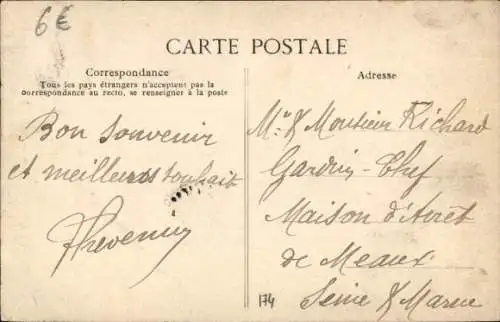 6€
CARTE POSTALE
Correspondance
Tous les pays étrangers n'acceptent pas la
correspondance au recto, se renseigner à la poste
Adresse
Bon souvenir
et meilleurs souhait
Thevenin
Mr & Monsieur Richard
Gardien-Chef
Maison d'Arrêt
de Meaux
Seine & Marne
174